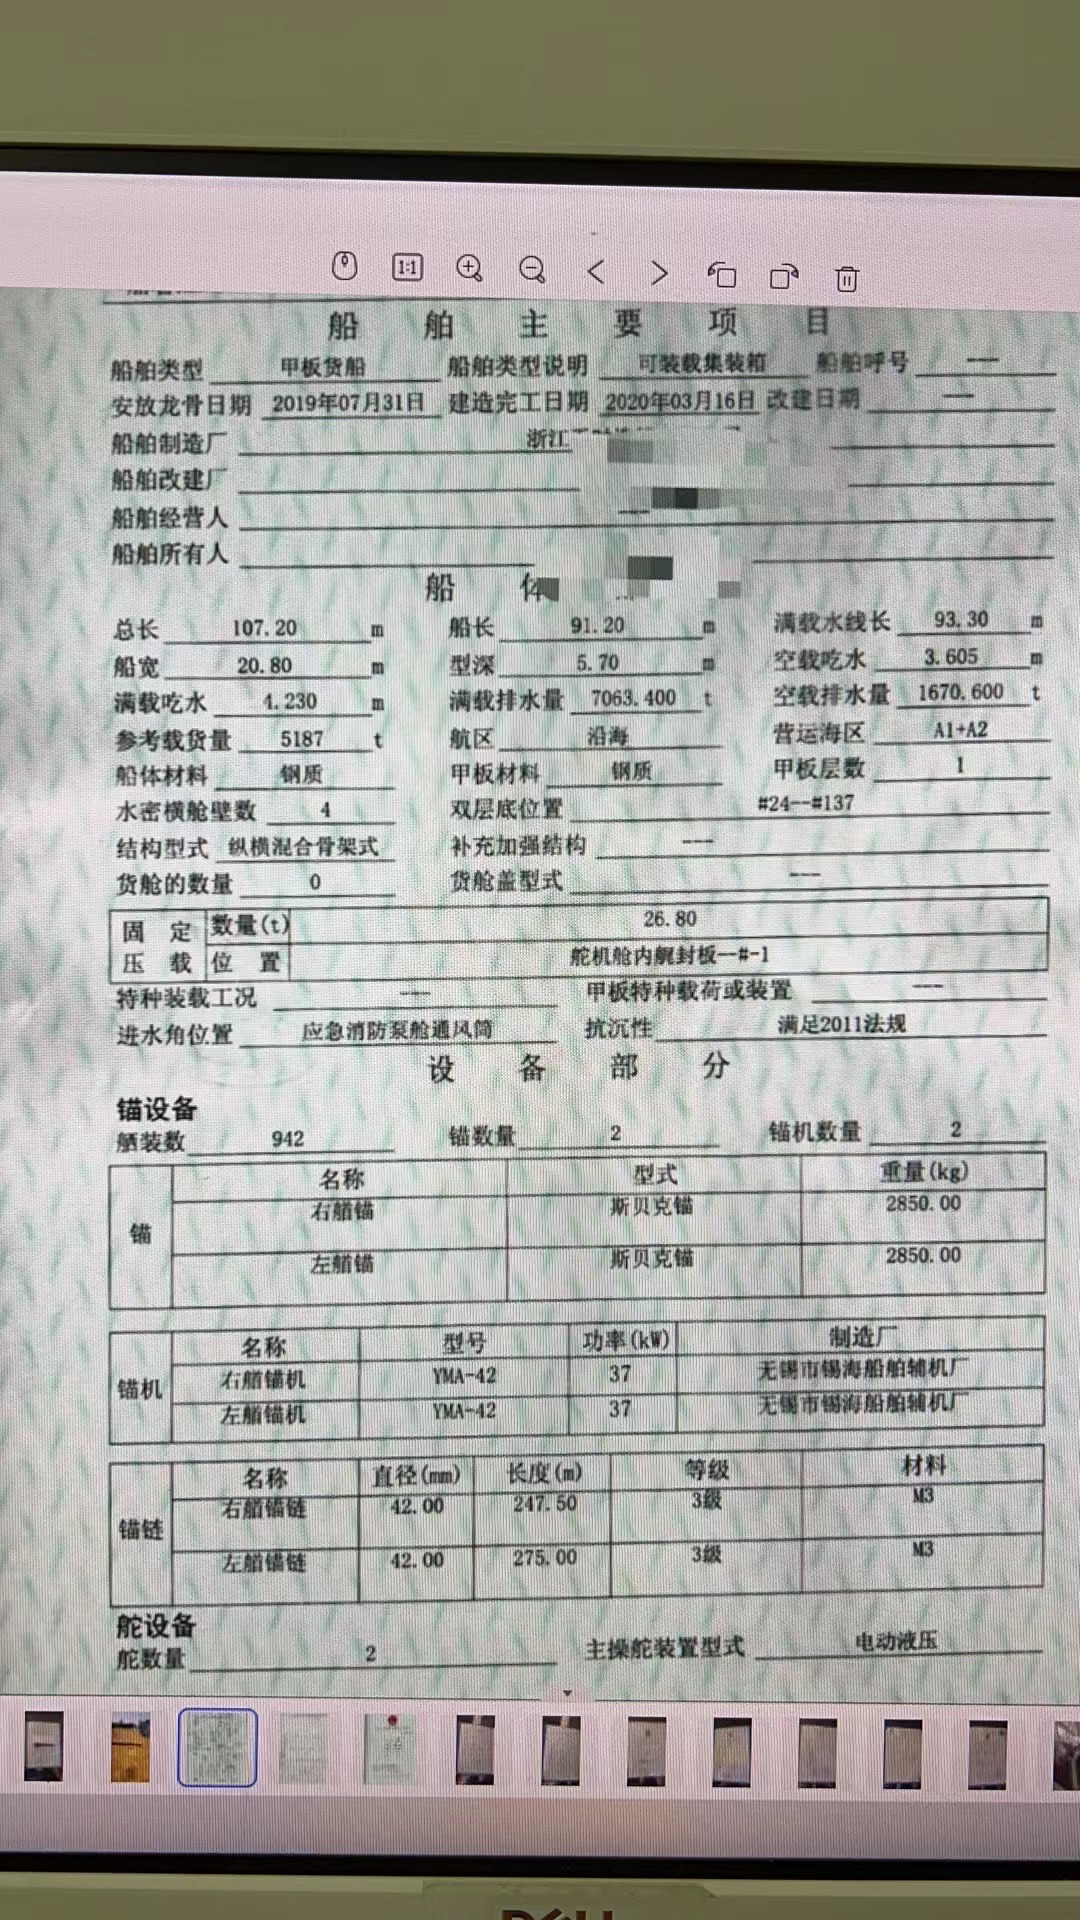 1:1
船舶主要项目
船舶类型 甲板货船 船舶类型说明 可装载集装箱 船舶呼号 ---
安放龙骨日期 2019年07月31日 建造完工日期 2020年03月16日 改建日期 ---
船舶制造厂 浙江
船舶改建厂
船舶经营人 ---
船舶所有人
船体
总长 107.20 m 船长 91.20 m 满载水线长 93.30 m
船宽 20.80 m 型深 5.70 m 空载吃水 3.605 m
满载吃水 4.230 m 满载排水量 7063.400 t 空载排水量 1670.600 t
参考载货量 5187 t 航区 沿海 营运海区 A1+A2
船体材料 钢质 甲板材料 钢质 甲板层数 1
水密横舱壁数 4 双层底位置 #24--#137
结构型式 纵横混合骨架式 补充加强结构 ---
货舱的数量 0 货舱盖型式 ---
固定压载 数量(t) 26.80
位置 舵机舱内艉封板--#-1
特种装载工况 --- 甲板特种载荷或装置 ---
进水角位置 应急消防泵舱通风筒 抗沉性 满足2011法规
设备部分
锚设备
舾装数 942 锚数量 2 锚机数量 2
锚 名称 型式 重量(kg)
右艏锚 斯贝克锚 2850.00
左艏锚 斯贝克锚 2850.00
锚机 名称 型号 功率(kW) 制造厂
右艏锚机 YMA-42 37 无锡市锡海船舶辅机厂
左艏锚机 YMA-42 37 无锡市锡海船舶辅机厂
锚链 名称 直径(mm) 长度(m) 等级 材料
右艏锚链 42.00 247.50 3级 M3
左艏锚链 42.00 275.00 3级 M3
舵设备
舵数量 2 主操舵装置型式 电动液压